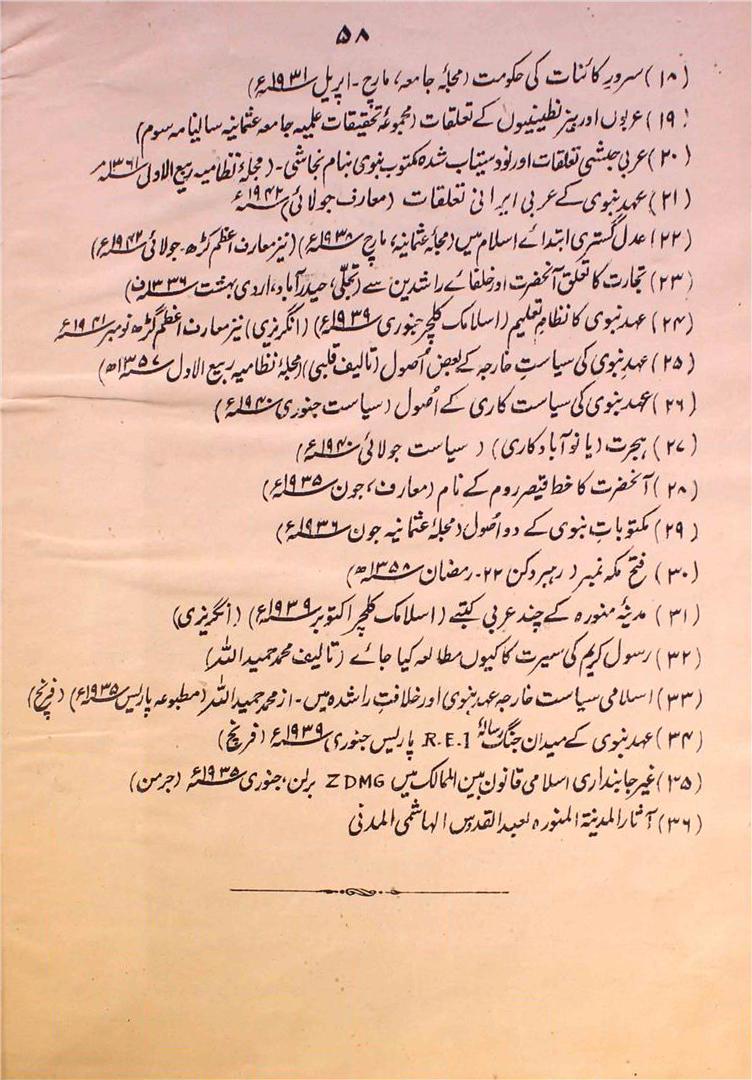 ۵۸
(۱۸) سرور کائنات کی حکومت (مجلۂ جامعہ، مارچ - اپریل ۱۹۳۱ء)
(۱۹) عربوں اور بیزنطینیوں کے تعلقات (مجموعۂ تحقیقات علمیہ جامعہ عثمانیہ سالنامہ سوم)
(۲۰) عربی حبشی تعلقات اور نو دستیاب شدہ مکتوب نبوی بنام نجاشی - (مجلۂ نظامیہ ربیع الاول ۱۳۶۱ھ
(۲۱) عہد نبوی کے عربی ایرانی تعلقات (معارف جولائی ۱۹۴۲ء)
(۲۲) عدل گستری ابتدائے اسلام میں (مجلۂ عثمانیہ، مارچ ۱۹۳۸ء) (نیز معارف اعظم گڑھ - جولائی ۱۹۴۲ء)
(۲۳) تجارت کا تعلق آنحضرت اور خلفائے راشدین سے (تجلّی، حیدرآباد، اردی بہشت ۱۳۳۶ف)
(۲۴) عہد نبوی کا نظام تعلیم (اسلامک کلچر جنوری ۱۹۳۹ء) (انگریزی) نیز معارف اعظم گڑھ نومبر ۱۹۴۱ء
(۲۵) عہد نبوی کی سیاست خارجہ کے بعض اُصول (تالیف قلبی) (مجلۂ نظامیہ ربیع الاول ۱۳۵۷ھ)
(۲۶) عہد نبوی کی سیاست کاری کے اُصول (سیاست جنوری ۱۹۴۰ء)
(۲۷) ہجرت (یا نو آباد کاری) (سیاست جولائی ۱۹۴۰ء)
(۲۸) آنحضرت کا خط قیصر روم کے نام (معارف، جون ۱۹۳۵ء)
(۲۹) مکتوبات نبوی کے دو اُصول (مجلۂ عثمانیہ جون ۱۹۳۶ء)
(۳۰) فتح مکہ نمبر (رہبر دکن ۲۲ - رمضان ۱۳۵۸ھ)
(۳۱) مدینۂ منورہ کے چند عربی کتبے (اسلامک کلچر اکتوبر ۱۹۳۹ء) (انگریزی)
(۳۲) رسول کریم کی سیرت کا کیوں مطالعہ کیا جائے (تالیف محمد حمید اللہ)
(۳۳) اسلامی سیاست خارجہ عہد نبوی اور خلافت راشدہ میں - از محمد حمید اللہ (مطبوعہ پاریس ۱۹۳۵ء) (فرنچ)
(۳۴) عہد نبوی کے میدان جنگ رسالۂ R.E.I پاریس جنوری ۱۹۳۹ء (فرنچ)
(۳۵) غیر جابنداری اسلامی قانون بین الممالک میں ZDMG برلن، جنوری ۱۹۳۵ء (جرمن)
(۳۶) آثار المدینۃ المنورہ لعبد القدوس الہاشمی المدنی